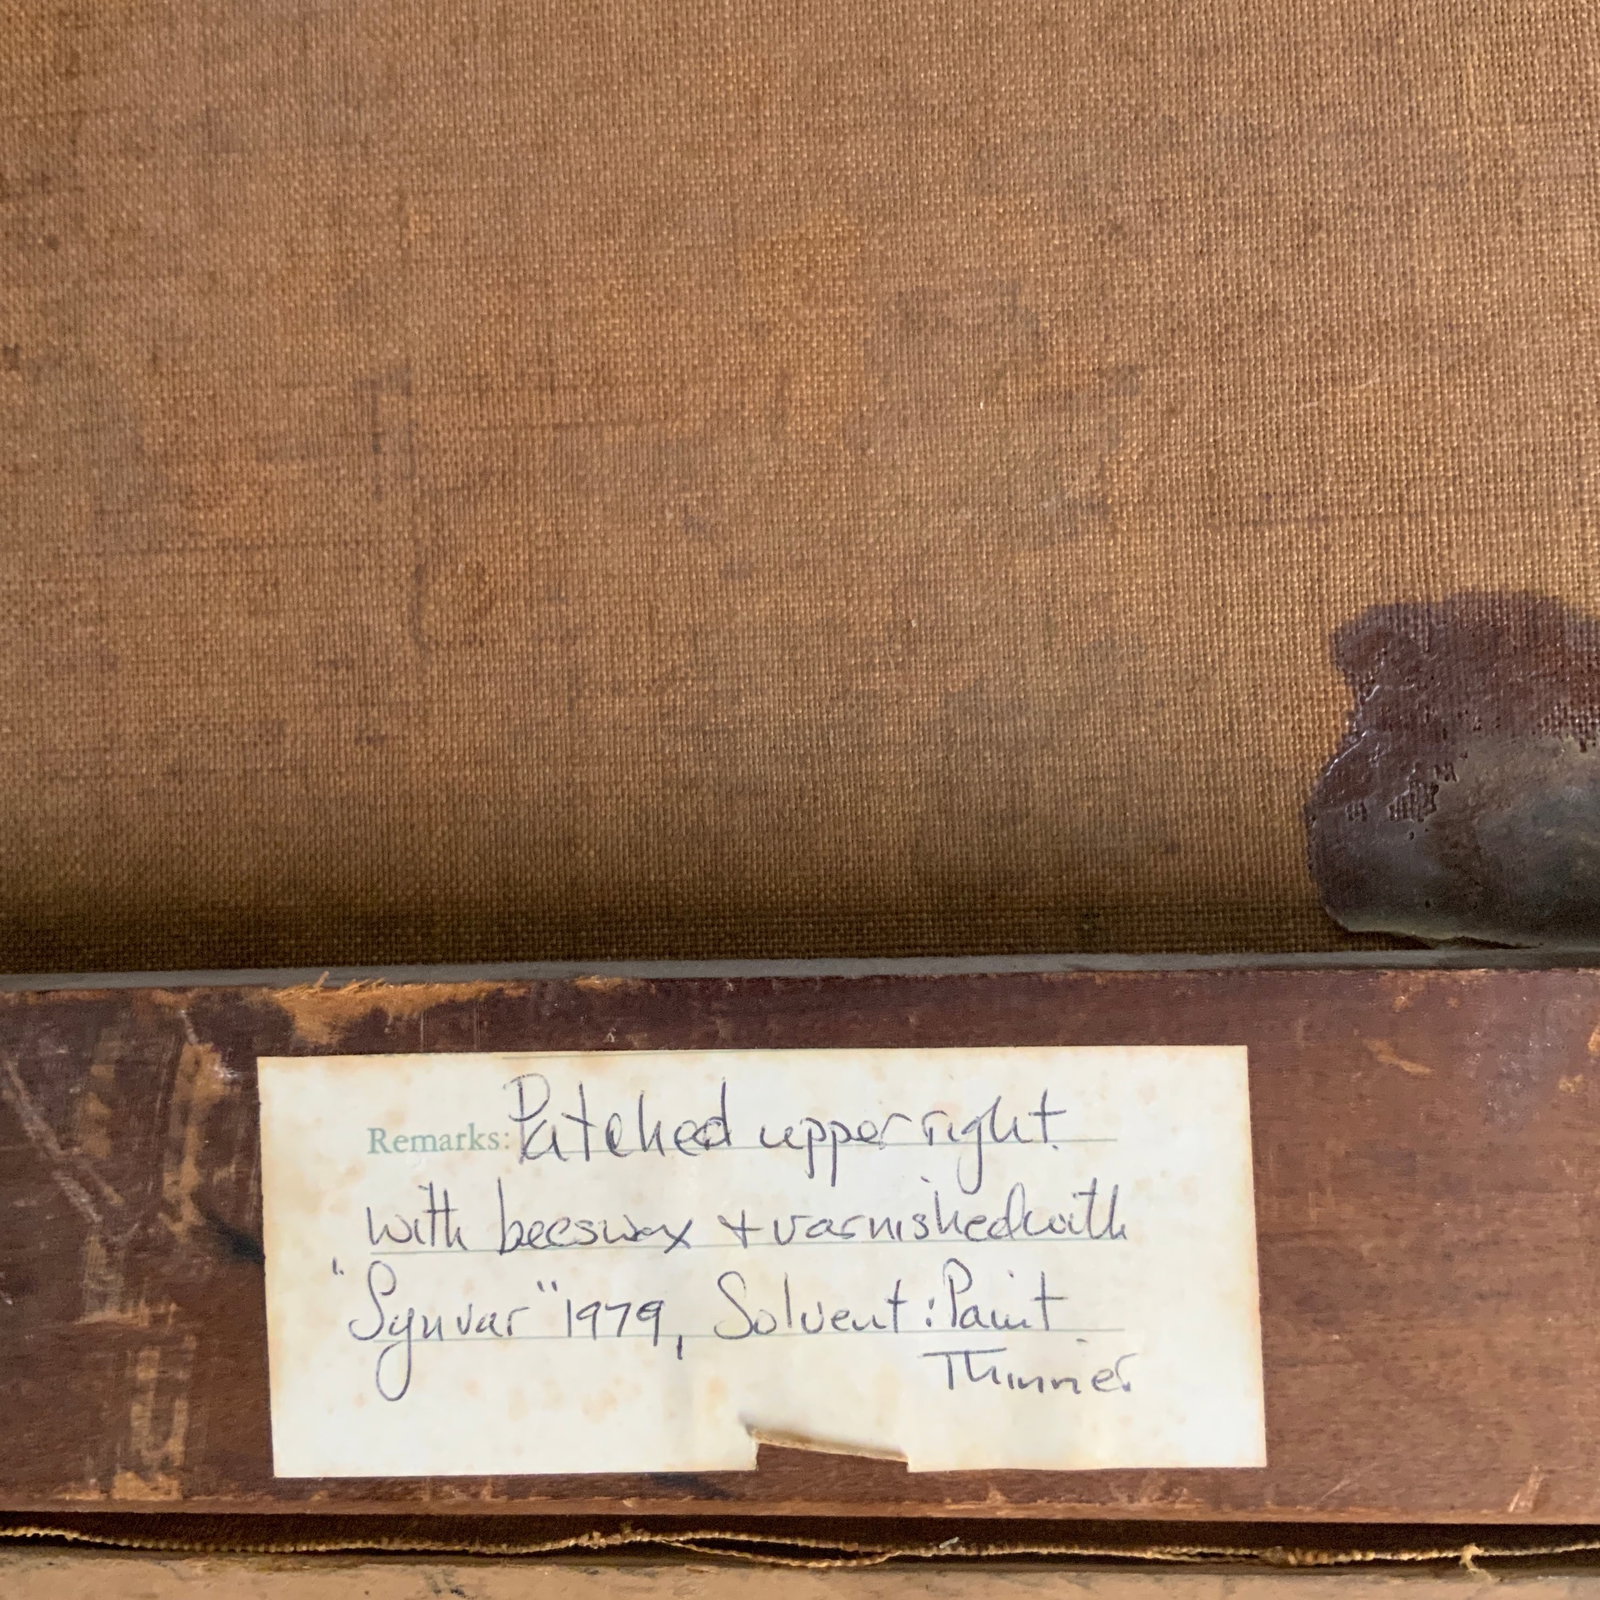 Remarks: Patched upper right
with beeswax + varnished with
"Synvar" 1979, Solvent: Paint
Thinner